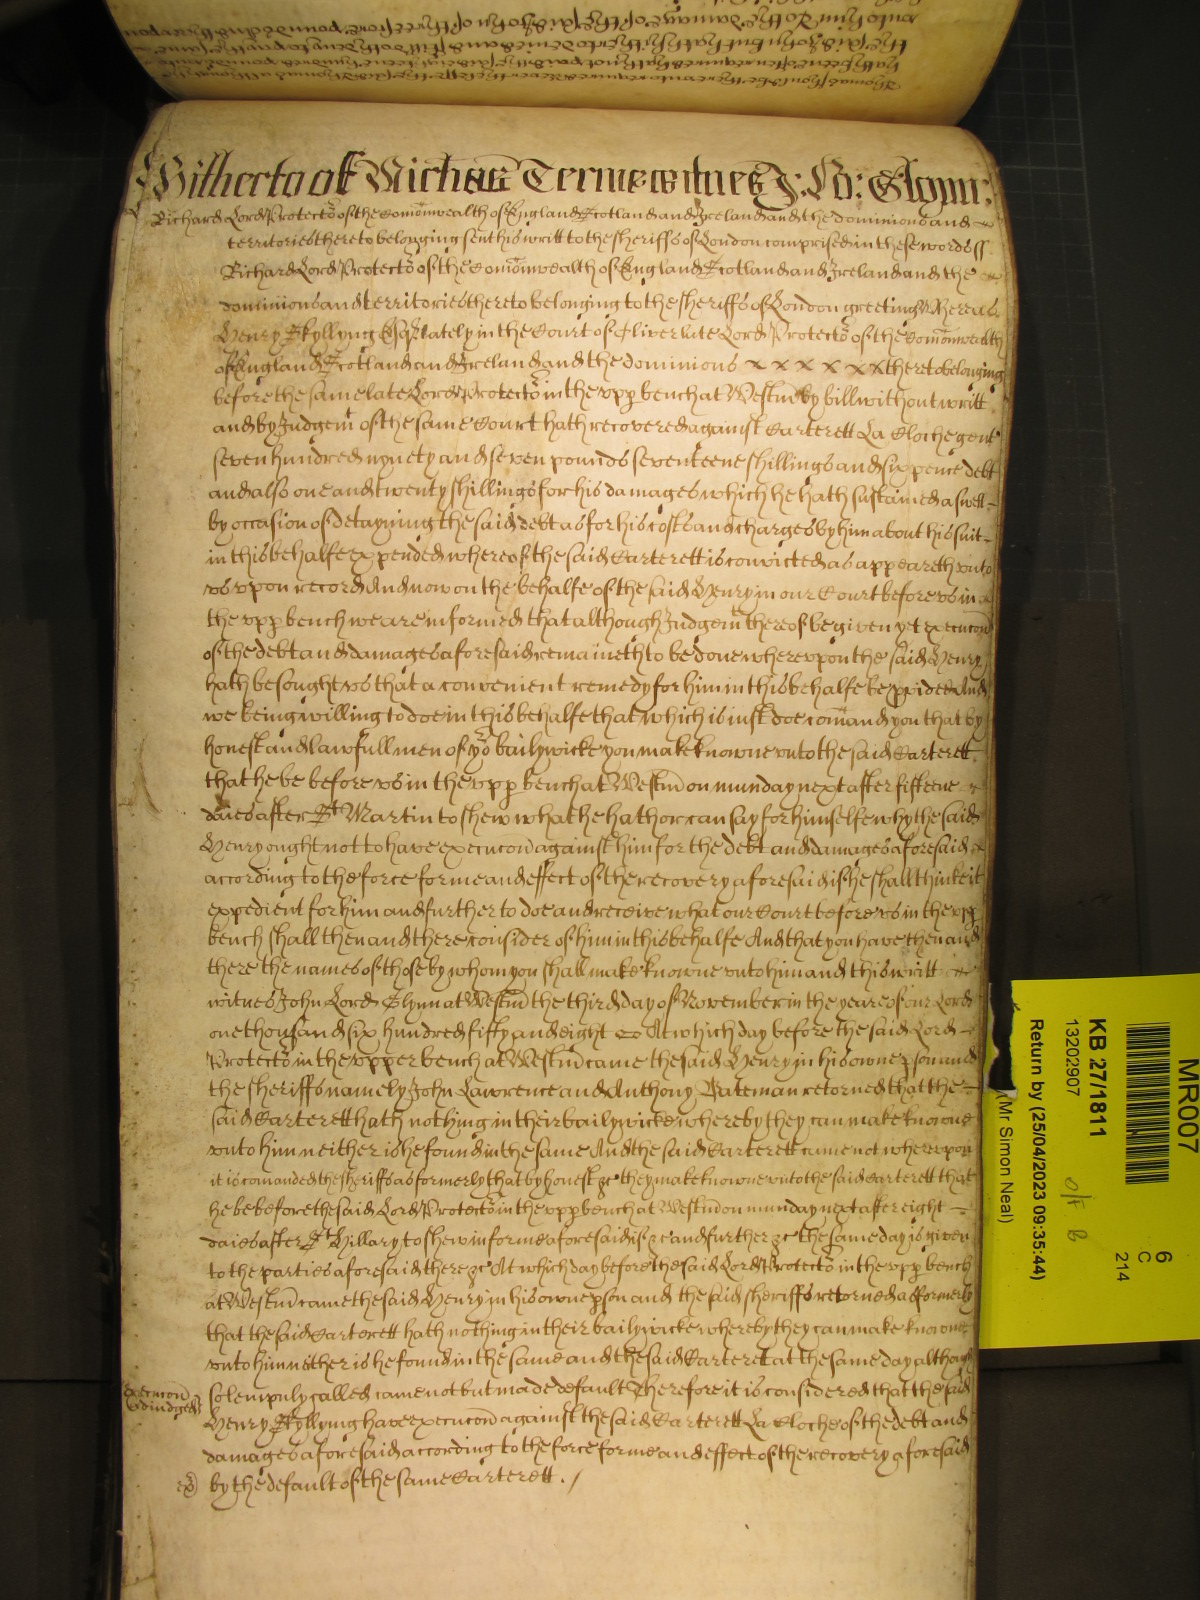 Hitherto of Michaelis Terme witnes J: Lo: Glynn:
Richard Lord Protector of the Comonwealth of England Scotland and Ireland and the dominions and
territories thereto belonging sent his writt to the sheriffs of London comprised in these words ss
Richard Lord Protector of the Comonwealth of England Scotland and Ireland and the
dominions and territories thereto belonging to the sheriffs of London greeting Whereas
Henry Skyllyng Esqr lately in the Court of Oliver late Lord Protector of the Comonwealth
of England Scotland and Ireland and the dominions x x x x x x thereto belonging
before the same late Lord Protector in the upp bench at Westm by bill without writt
and by Judgem of the same Court hath recovered against Carterett La Cloche gent
seven hundred nynety and seven pounds seventeene shillings and six pence debt
and also one and twenty shillings for his damages which he hath susteined aswell
by occasion of detayning the said debt as for his costs and charges by him about his suit
in this behalfe expended whereof the said Carterett is convicted as appeareth unto
us upon record And now on the behalfe of the said Henry in our Court before us in
the upp bench we are informed that although Judgem thereof be given yet execucon
of the debt and damages aforesaid remaineth to be done whereupon the said Henry
hath besought us that a convenient remedy for him in this behalfe be pvided And
we being willing to doe in this behalfe that which is just doe comand you that by
honest and lawfull men of yor bailywicke you make knowne unto the said Carterett
that he be before us in the upp bench at Westm on munday next after fifteene
daies after St Martin to shew what he hath or can say for himselfe why the said
Henry ought not to have execucon against him for the debt and damages aforesaid
according to the force forme and effect of the recovery aforesaid if he shall thinke it
expedient for him and further to doe and receive what our Court before us in the upp
bench shall then and there consider of him in this behalfe And that you have then and
there the names of those by whom you shall make knowne unto him and this writt
witnes John Lord Glynn at Westm the third day of November in the yeare of our Lord
one thousand six hundred fifty and eight At which day before the said Lord
Protector in the upper bench at Westm came the said Henry in his owne pson and
the sheriffs namely John Lawrence and Anthony Bateman retorned that the
said Carterett hath nothing in their bailywicke whereby they can make knowne
unto him neither is he found in the same And the said Carterett came not whereupon
it is comanded the sheriffs as formerly that by honest &c they make knowne unto the said Carterett that
he be before the said Lord Protector in the upp bench at Westm on munday next after eight
daies after St Hillary to shew in forme aforesaid if &c and further &c the same day is given
to the parties aforesaid there &c At which day before the said Lord Protector in the upp bench
at Westm came the said Henry in his owne pson and the said sheriffs retorned as formerly
that the said Carterett hath nothing in their bailywicke whereby they can make knowne
unto him neither is he found in the same and the said Carterett at the same day although
solempnly called came not but made default Therefore it is considered that the said
Henry Skyllyng have execucon against the said Carterett La Cloche of the debt and
damages aforesaid according to the force forme and effect of the recovery aforesaid
by the default of the same Carterett
Execucon
adiudged
MR007
6
C
214
KB 27/1811
13202907
Return by (25/04/2023 09:35:44)
(Mr Simon Neal)